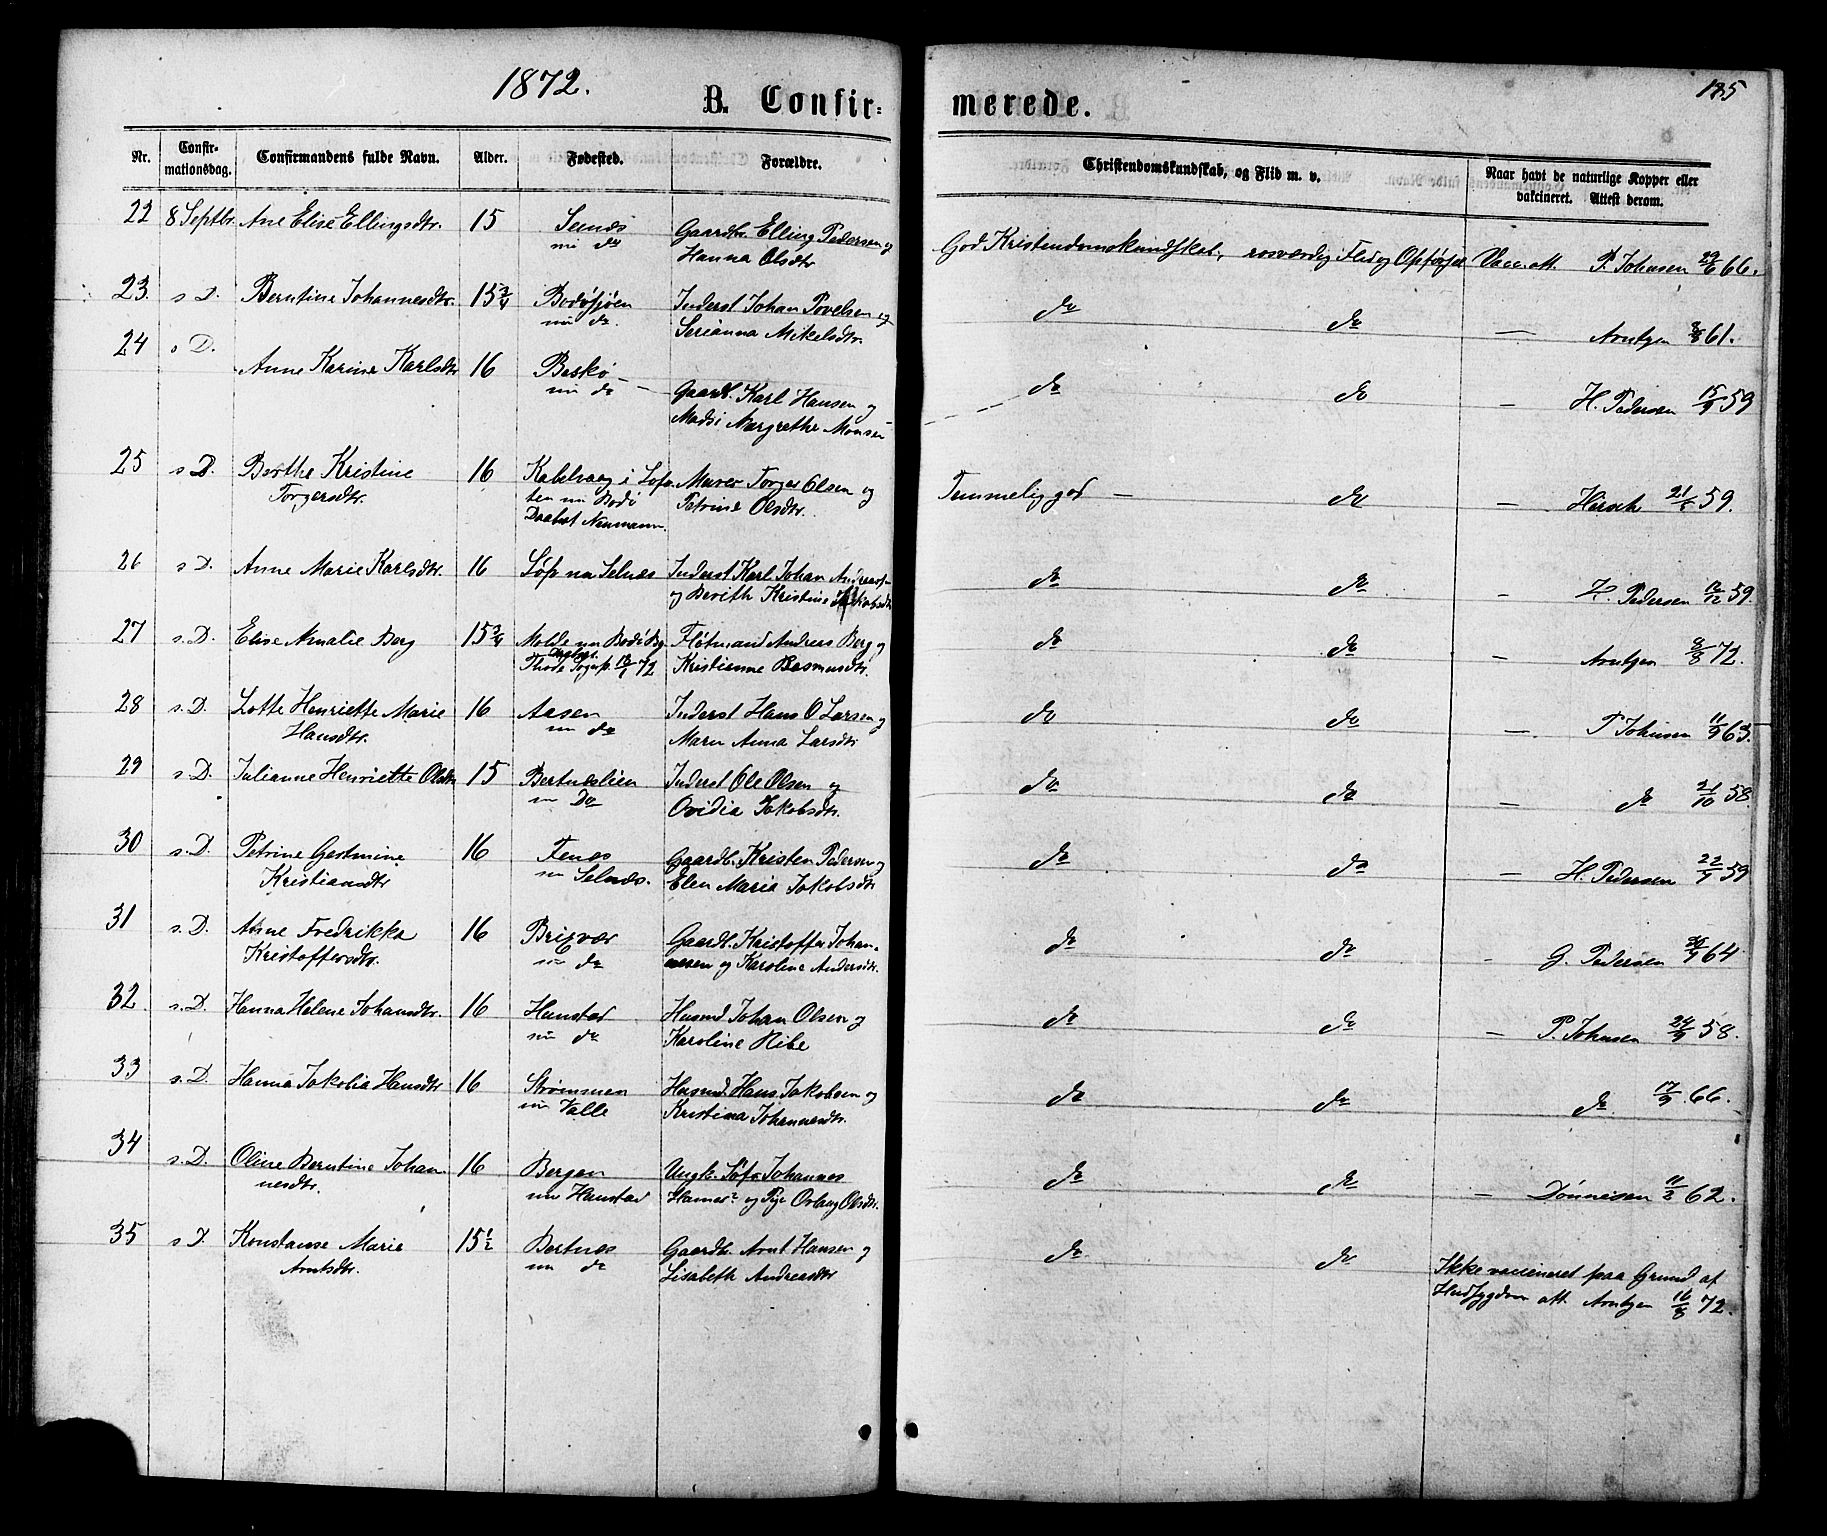 1872.
185
B. Confir=
merede.
Nr.
Confir-
mationsdag.
Confirmandens fulde Navn.
Alder.
Fødested.
Forældre.
Christendomskundskab, og Flid m. v.
Naar havt de naturlige Kopper eller
vakcineret. Attest derom.
22 8 Septbr. Ane Elise Ellingsdtr. 15
nu do
Gaardbr. Elling Pedersen og
Hanna Olsdtr
God Kristendomskundskab, rosværdig Flid og Opførsel Vacc. att. P. Johnsen 29/6 66.
23. s D. Berntine Johannesdtr. 15 3/4 Bodøsjøen
nu do.
Inderst Johan Povelsen og
Serianna Mikelsdtr.
do do — Arntzen 61.
24 s D. Anne Karine Karlsdtr 16
nu do
Gaardb. Karl Hansen og
Madsi Margrethe Monsen
do do — H. Pedersen 15/9 59
25 s D. Berthe Kristine
Torgersdtr.
16 Kabelvaag i Lofo-
ten nu Bodø
Neumann.
Murer Torger Olsen og
Petrine Olsdtr.
Temmelig god — do — 59.
26 s D. Anne Marie Karlsdtr. 16 Løp nu Selnæs
Inderst Karl Johan
og Berith Kristine
do do - H. Pedersen 12/12 59.
27 s. D. Elise Amalie Berg 15 3/4 Molde nu Bodø By.
72
Andreas Berg og
Kristianne Rasmusdtr.
do do - Arntzen 72.
28 s. D. Lotte Henriette Marie
Hansdtr.
16 Aasen
nu do
Inderst Hans O Larsen og
Maren Anna Larsdtr
do do — P Johnsen 11/9 63.
29 s D. Julianne Henriette Olsdtr 15 Bertnæslien
nu Do
Inderst Ole Olsen og
Ovidia Jakobsdtr.
do do - do 21/10 58
30 s. D. Petrine Gertmine
Kristiansdtr
16
nu Selnæs.
Gaardb. Kristen Pedersen og
Elen Maria Jakobsdtr
do do — H. Pedersen 22/9 59
31 s. D. Anne Fredrikka
Kristoffersdtr.
16 Brixvær
nu do
Gaardb. Kristoffer Johan-
nesen og Karoline Andersdtr.
do do - G. Pedersen 64
32. s. D. Hanna Helene Johansdtr. 16 Hunstad
nu do
Husmd. Johan Olsen og
Karoline Ribe
do do — P. Johnsen 24/9 58.
33 s. D. Hanna Jakobia Hansdtr 16 Strømmen
nu Valle
Husmd. Hans Jakobsen og
Kristina Johannesdtr.
do do do 17/9 66.
34 s. D. Oline Berntine Johan-
nesdtr.
16 Bergen
nu Hunstad
Ungk. Johannes
og Pige Olsdtr.
do do — Dønnesen 62.
35 s D. Konstanse Marie
Arntsdtr.
15 1/2 Bertnæs
nu do
Gaardb. Arnt Hansen og
Lisabeth Andreasdtr
do do Ikke vaccineret paa Grund af
Hudsygdom att. Arntzen 16/8 72.